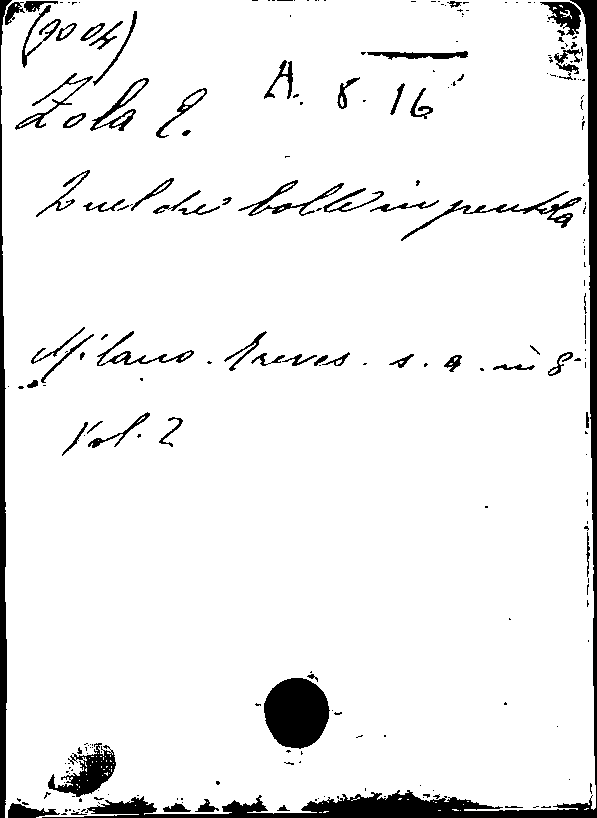 (9004)
A. 8. 16
Zola E.
Quel che bolle in pentola
Milano. Treves. s. a. in 8°
Vol. 2